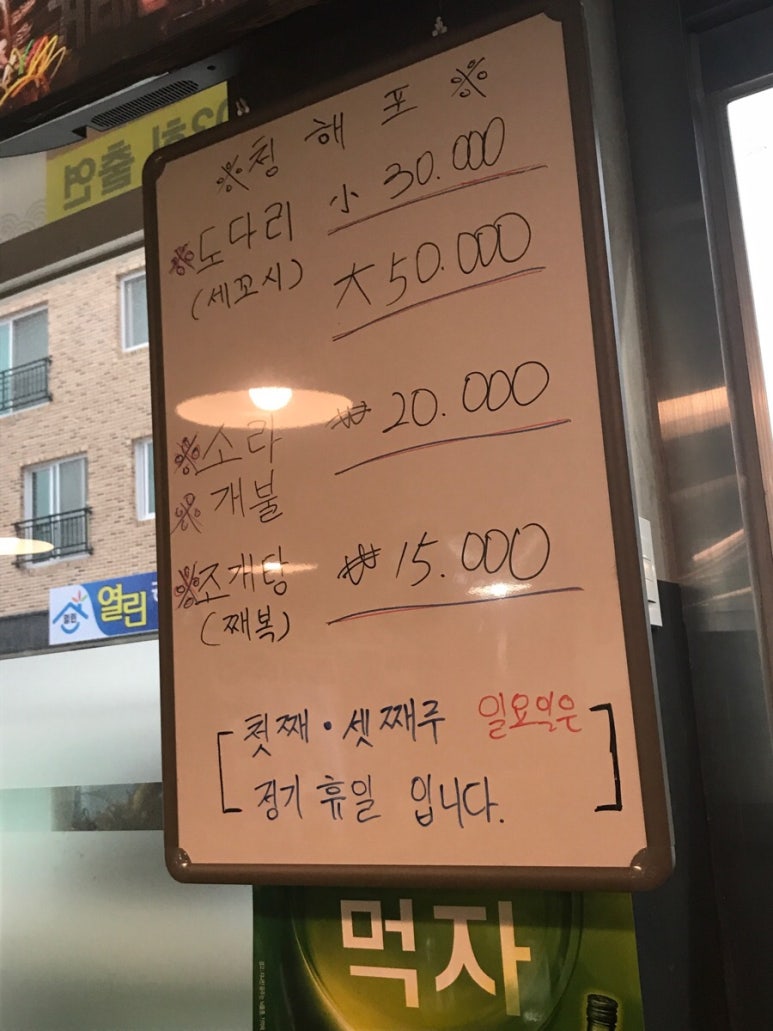 ※청 해 포※
※도다리 小 30.000
(세꼬시) 大 50.000
※소라 ₩ 20.000
※개불
※조개탕 ₩ 15.000
(째복)
[첫째·셋째주 일요일은
정기휴일 입니다.]
출연
열린
먹자